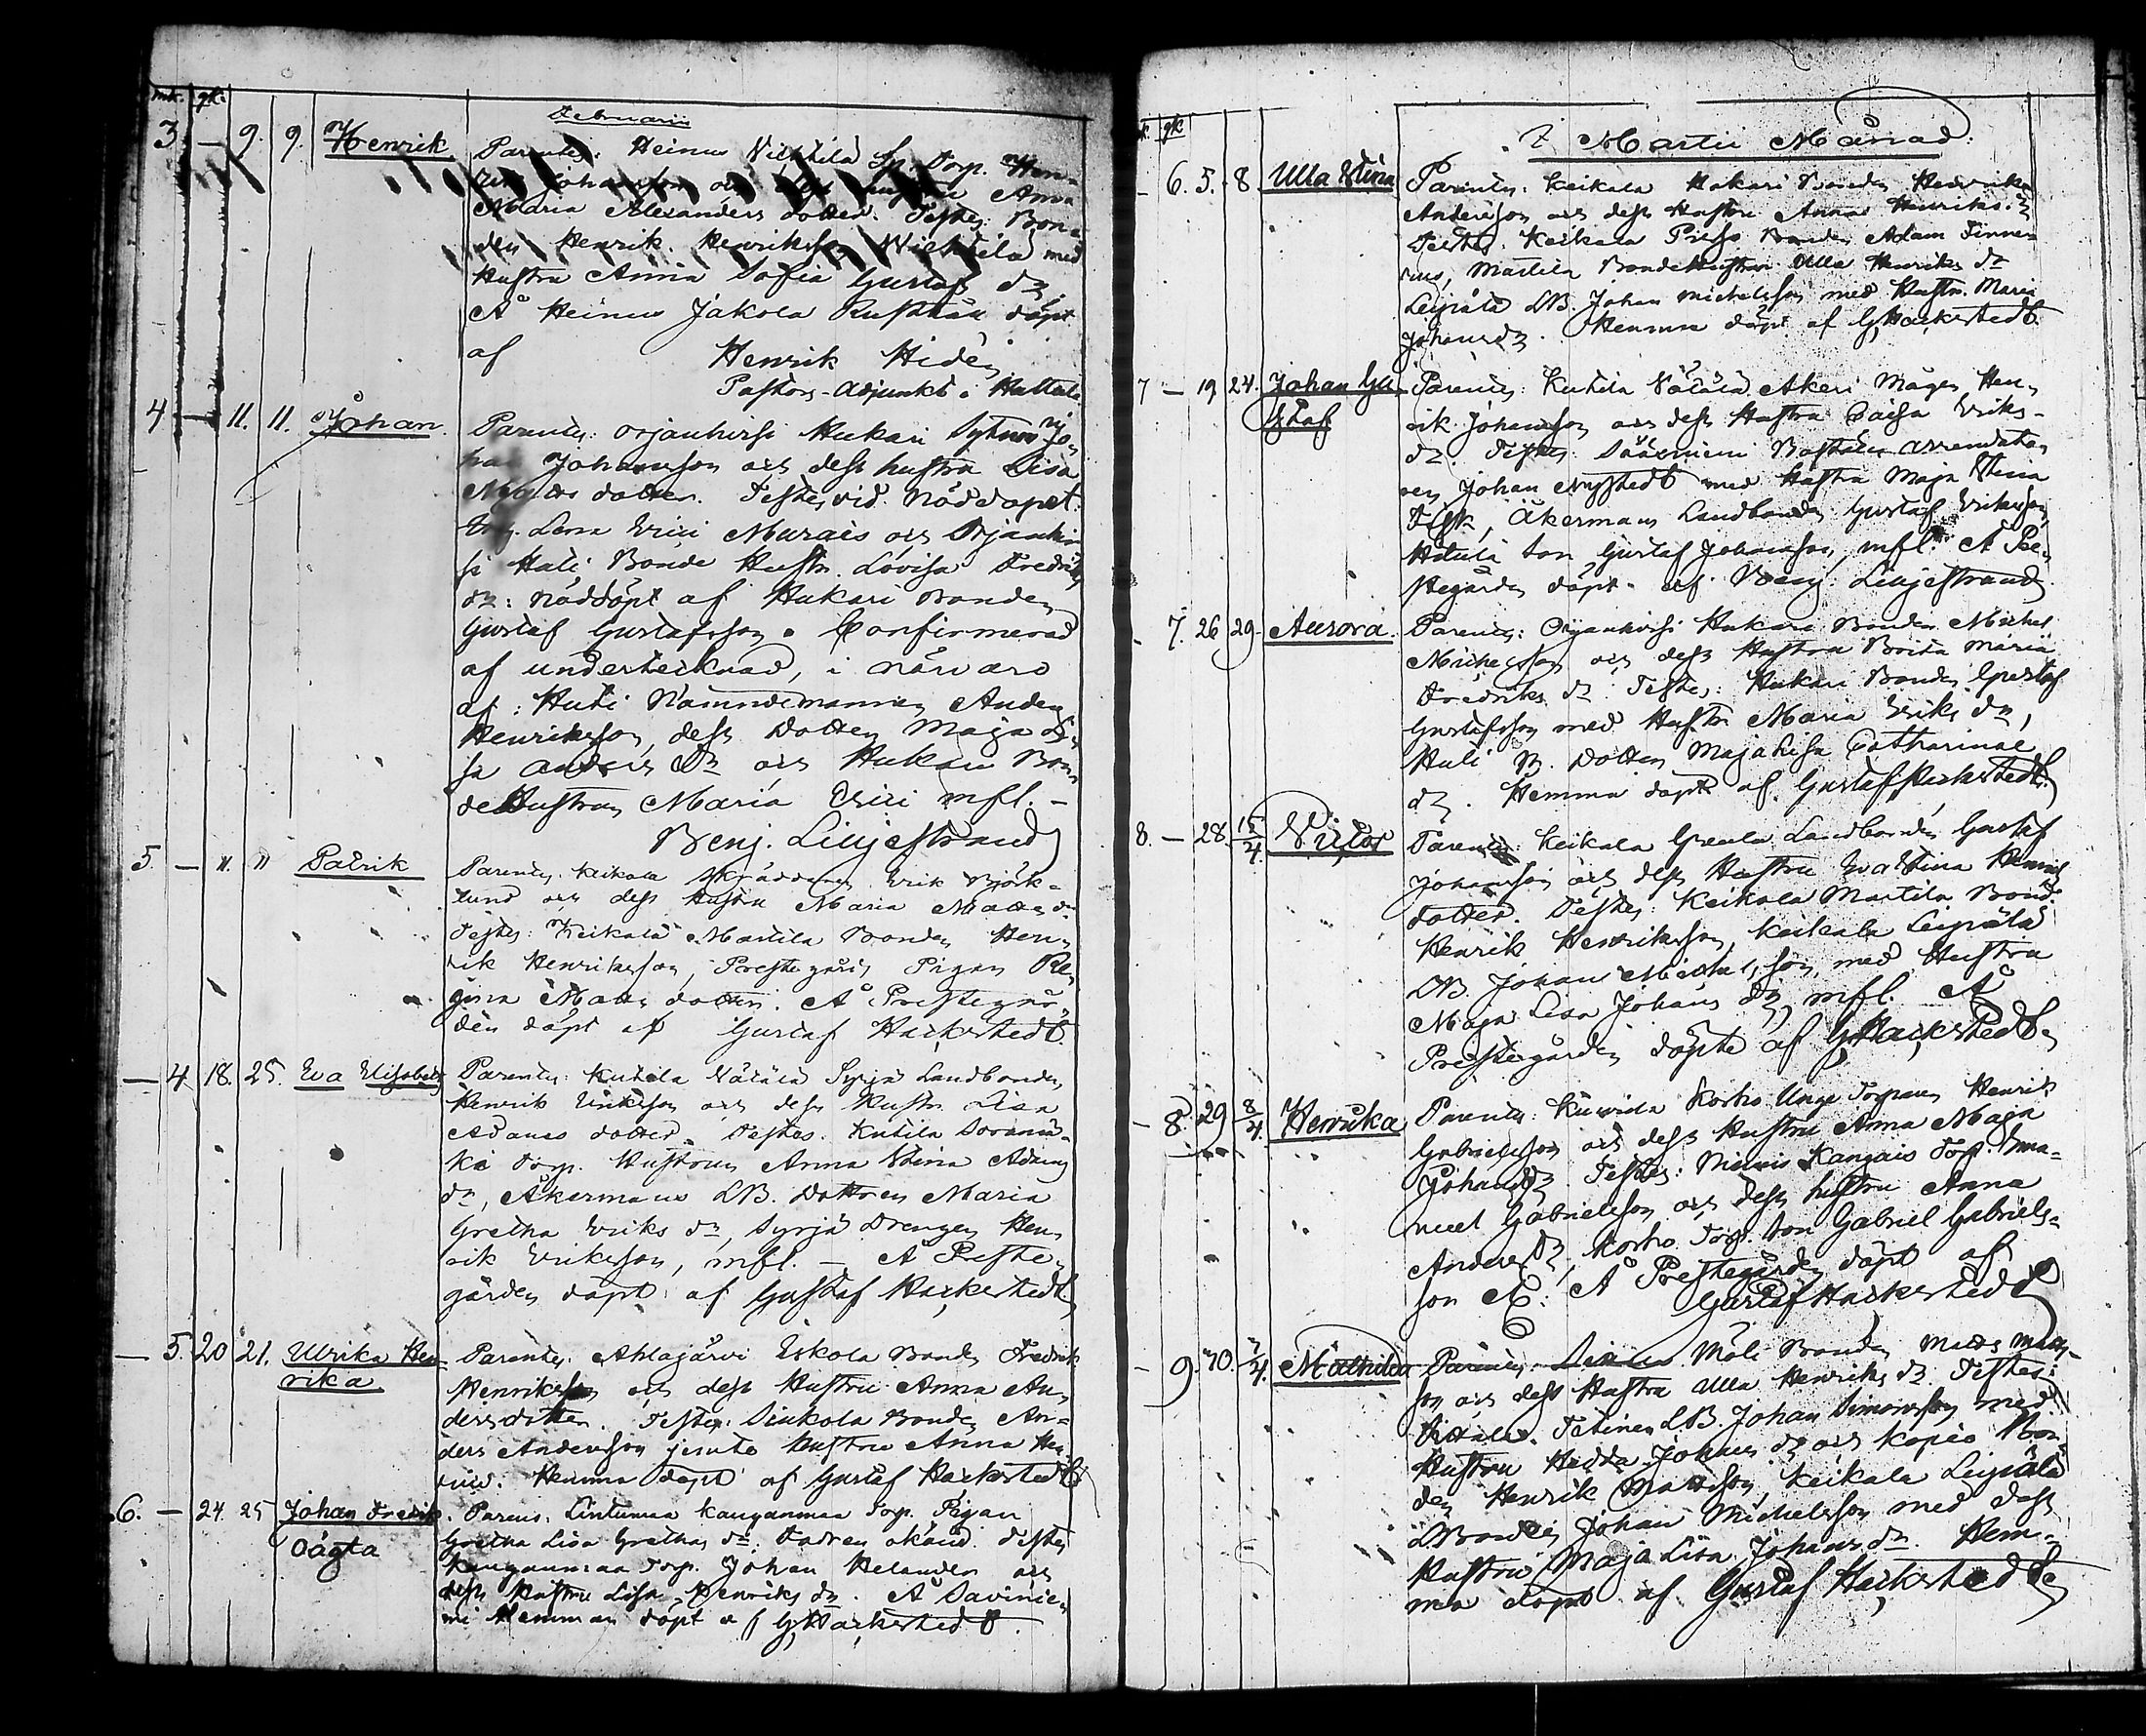 mk. qk.
Februarii
3 — 9. 9. Henrik
Parentes: Heinus Torp. Hen-
rik Johansson och dess hustru Anna
Maria Alexanders dotter. Testes: Bon-
den Henrik Henriksson med
Hustru Anna Sofia Gustafs dr
Å Heinus Jakola Rusthåll döpt
af Henrik Hidén
Pastors-Adjunkt i Hattula
4 — 11. 11. Johan.
Parentes: Orjanhirsi Hukari Jo-
han Johansson och dess hustru Lisa
dotter. Testes vid Nöddopet:
Lena Erici och Orjanhir
si Huli Bonde Hustr. Lovisa Fredriks
dr: Nöddöpt af Hukari Bonden
Gustaf Gustafsson. Confirmerad
af undertecknad, i närvaro
af: Huli Nämndemannen Anders
Henriksson, dess Dotter Maja Li
sa Anders dr och Hukari Bon
deHustrun Maria Erici mfl. –
Benj. Liljestrand
5. — " " Patrik
Parentes Keikala Skräddaren Erik Björk-
lund och dess Hustru Maria Matts dr
Testes: Keikala Martila Bonden Hen-
rik Henriksson, Prestegårds Pigan Re-
gina Matts dotter. Å Prestegår-
den döpt af Gustaf Hackstedt.
— 4 18. 25. Eva Elisabeth
Parentes: Kutila Nätälä Syrjä Landbonden
Henrik Eriksson och dess Hustr. Lisa
Adams dotter. Testes. Kutila
Torp. Hustrun Anna Stina Adams
dr, Åkermans LB. Dottren Maria
Gretha Eriks dr, Syrjä Drengen Hen
rik Eriksson, mfl. — Å Preste-
gården döpt af Gustaf Hackstedt
— 5. 20 21. Ulrika Hen-
rika
Parentes. Ahlajärvi Eskola Bonden Fredrik
Henriksson och dess Hustru Anna An-
dersdotter. Testes: Sinkola Bonden An-
ders Andersson jemte Hustru Anna Hen
rici. Hemma döpt af Gustaf Hackstedt
6. — 24. 25 Johan Fredrik
Oägta
Parens: Lintumaa Kanganmaa Torp. Pigan
Gretha Lisa Grethas dr. Fadren okänd. Testes
Kanganmaa Torp. Johan Helander och
dess Hustru Lisa Henriks dr. Å Savinie
mi Hemman döpt af G. Hackstedt.
qk
I Martii Månad.
— 6. 5. 8. Ulla Stina
Parentes: Keikala Hakari Bonden Henrik
Andersson och dess Hustru Anna Henriks dr
Testes. Keikala Bonden Adam
Martila BondeHustrun Ulla Henriks dr
Leipälä LB. Johan Michelsson med Hustr. Maria
Johans dr. Hemma döpt af G. Hackstedt.
7 — 19 24. Johan Gu
staf
Parentes: Kutila Nätälä Akeri Mågen Hen
rik Johansson och dess Hustru Caisa Eriks-
dr. Testes: Sääxniemi Boställes Arrendato
ren Johan Nystedt med Hustru Maja Stina
Åkermans Landbonden Gustaf Eriksson,
son Gustaf Johansson, mfl. Å Pre-
stegården döpt af Benj. Liljestrand
— 7. 26 29. Aurora.
Parentes: Orjanhirsi Hukari Bonden Michel
Michelsson och dess Hustru Brita Maria
Fredriks dr. Testes: Hukari Bonden Gustaf
Gustafsson med Hustr. Maria Eriks dr,
Huli B. Dotter Maja Lisa Catharinae
dr. Hemma döpt af Gustaf Hackstedt.
8. — 28. 15/4 Victor
Parentes: Keikala Landbonden Gustaf
Johansson och dess Hustru Eva Stina Henriks
dotter. Testes: Keikala Martila Bond.
Henrik Henriksson, Keikala Leipälä
LB. Johan Michelsson, med Hustru
Maja Lisa Johans dr, mfl. Å
Prestegården döpte af G. Hackstedt.
— 8. 29 8/4 Henrika
Parentes: Korko Unge Torparn Henrik
Gabrielsson och dess Hustru Anna Maja
Johans dr. Testes: Kangais Torp. Ema-
nuel Gabrielsson och dess hustru Anna
Anders dr, Korko Torp. son Gabriel Gabriels-
son &. Å Prestegården döpt af
Gustaf Hackstedt
— 9. 30. 7/4. Mathilda
Parentes. Möli Bonden Matts Matts-
son och dess Hustru Ulla Henriks dr. Testes:
LB. Johan Simonsson med
Hustru Hedda Johans dr och Bon
den Henrik Mattsson, Keikala Leipälä
LBonden Johan Michelsson med dess
Hustru Maja Lisa Johans dr. Hem-
ma döpt af Gustaf Hackstedt